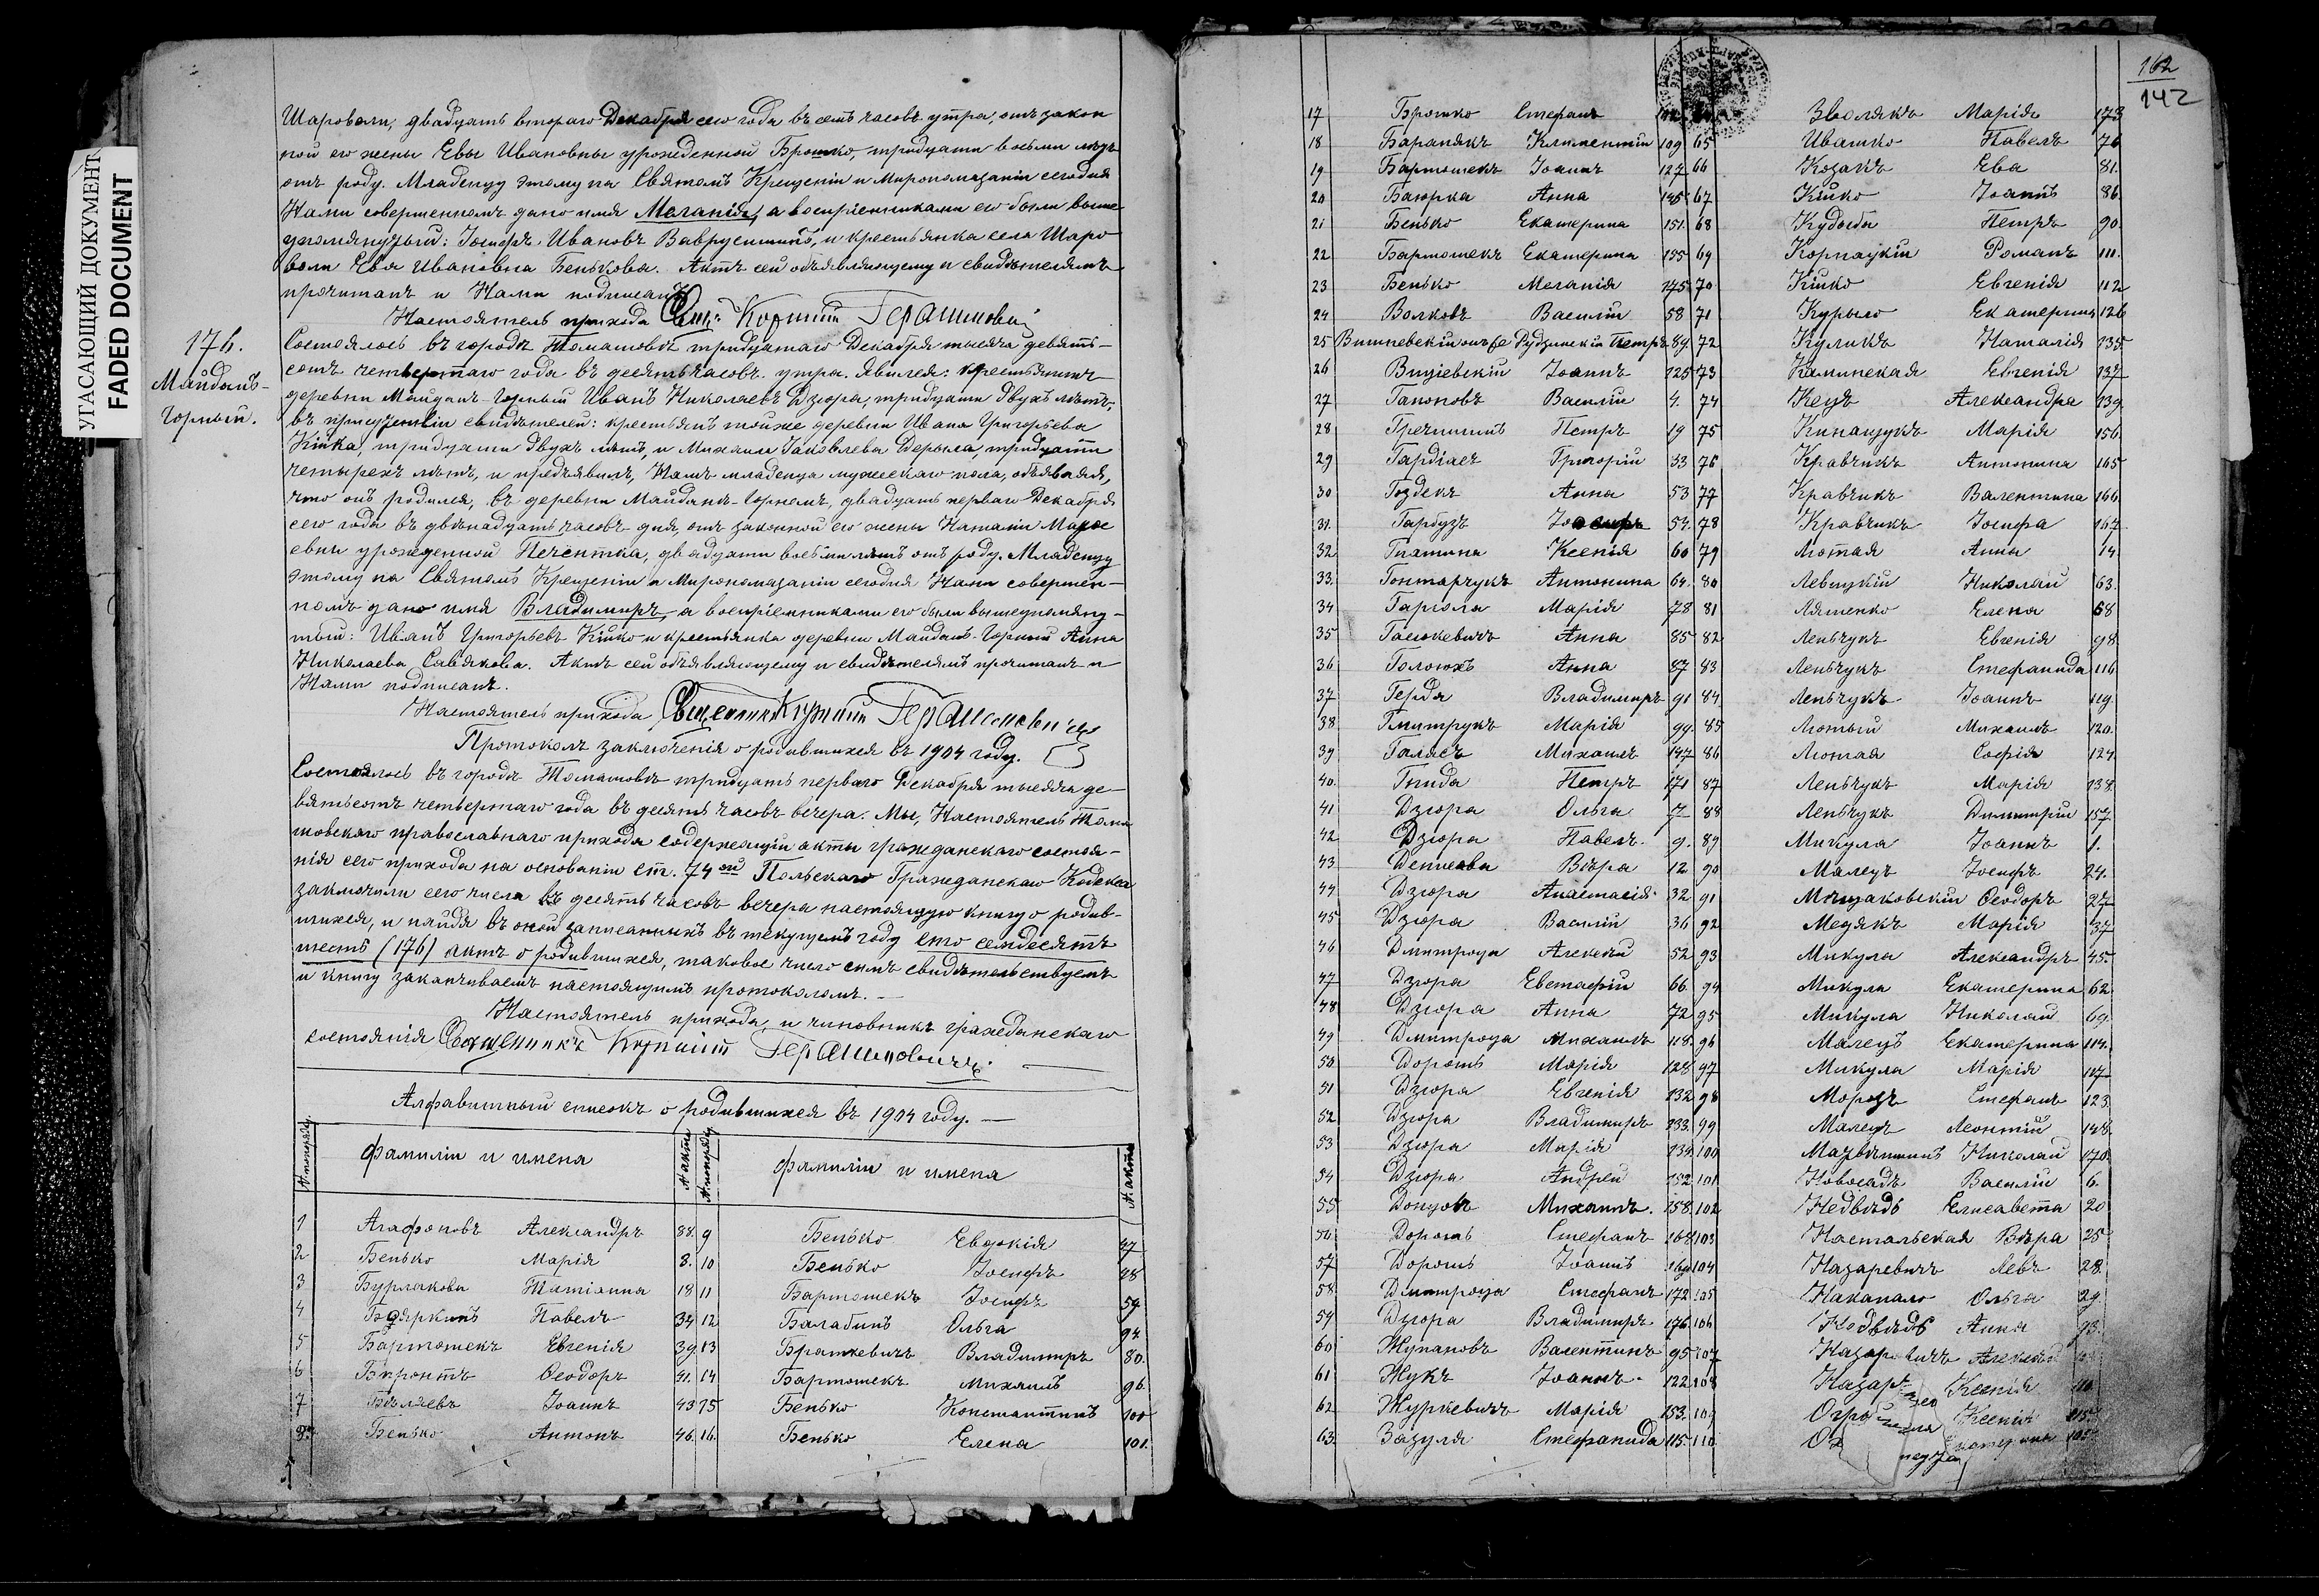 УГАСАЮЩИЙ ДОКУМЕНТ
FADED DOCUMENT
Шароволи, двадцать втораго Декабря сего года въ семь часовъ утра, отъ закон
ной его жены Евы Ивановны урожденной Брошко, тридцати восьми лѣтъ
отъ роду. Младенцу этому на Святомъ Крещеніи и Мѵропомазаніи сегодня
Нами совершенномъ дано имя Меланія, а воспріемниками его были выше
упомянутый: Іосифъ Ивановъ и крестьянка села Шаро
воли Ева Ивановна Бенькова. Актъ сей объявляющему и свидѣтелямъ
прочитанъ и Нами подписанъ.
Настоятель прихода Свящ: Корнилій Герасимовичъ
176.
Майданъ-
Горный.
Состоялось въ городѣ Томашовѣ тридцатаго Декабря тысяча девять-
сотъ четвертаго года въ десять часовъ утра. Явился: крестьянинъ
деревни Майданъ-Горный Иванъ Николаевъ Дзюра, тридцати двухъ лѣтъ,
въ присутствіи свидѣтелей: крестьянъ тойже деревни Ивана Григорьева
Кійка, тридцати двухъ лѣтъ, и Михаила Іаковлева Дерыла, тридцати
четырехъ лѣтъ, и предъявилъ Намъ младенца мужескаго пола, объявляя,
что онъ родился въ деревни Майданѣ-Горномъ, двадцать перваго Декабря
сего года въ двѣнадцать часовъ дня, отъ законной его жены Наталіи
евны урожденной Печентка, двадцати восьми лѣтъ отъ роду. Младенцу
этому на Святомъ Крещеніи и Мѵропомазаніи сегодня Нами совершен-
номъ дано имя Владимиръ, а воспріемниками его были вышеупомяну-
тый: Иванъ Григорьевъ Кійко и крестьянка деревни Майданъ-Горный Анна
Николаева Савякова. Актъ сей объявляющему и свидѣтелямъ прочитанъ и
Нами подписанъ.
Настоятель прихода Священникъ Корнилій Герасимовичъ
Протоколъ заключенія о родившихся въ 1904 году.
Состоялось въ городѣ Томашовѣ тридцать перваго Декабря тысяча де-
вятьсотъ четвертаго года въ десять часовъ вечера. Мы, Настоятель Тома
шовскаго православнаго прихода содержащій акты гражданскаго состоя-
нія сего прихода на основаніи ст. 74ой Польскаго Гражданскаго Кодекса
заключили сего числа въ десять часовъ вечера настоящую книгу о родив-
шихся, и найдя въ оной записанныхъ въ текущемъ году сто семьдесятъ
шесть (176) актъ о родившихся, таковое число симъ свидѣтельствуемъ
и книгу заканчиваемъ настоящимъ протоколомъ.
Настоятель прихода и чиновникъ гражданскаго
состоянія Священникъ Корнилій Герасимовичъ.
Алфавитный списокъ о родившихся въ 1904 году.
№ попоряд. Фамиліи и имена № акта № попоряд. Фамиліи и имена № акта
1 Агафоновъ Александръ 88. 9 Бенько Евдокія 47
2 Бенько Марія 8. 10 Бенько Іосифъ 48
3 Бурлакова Татіанна 18 11 Бартошекъ Іосифъ 59
4 Павелъ 34 12 Балабинъ Ольга 94
5 Бартошекъ Евгенія 39 13 Браткевичъ Владиміръ 80.
6 Ѳеодоръ 41. 14 Бартошекъ Михаилъ 96
7 Бѣляевъ Іоаннъ 43 15 Бенько Константинъ 100
8 Бенько Антонъ 46. 16. Бенько Елена 101.
162
142
17 Брошко Стефанъ Зволякъ Марія 173
18 Баранякъ Климентій 109 65 Ивашко Павелъ 76
19 Бартошекъ Іоаннъ 127 66 Козакъ Ева 81.
20 Баюрка Анна 145 67 Кійко Іоаннъ 86
21 Бенько Екатерина 151. 68 Кудыба Петръ 90
22 Бартошекъ Екатерина 155 69 Корпацкій Романъ 111.
23 Бенько Меланія 175 70 Кійко Евгенія 112
24 Волковъ Василій 58 71 Курыло Екатерина 126
25 Вишневскій онъ же Рудзинскій Петръ 89 72 Куликъ Наталія 135
26 Іоаннъ 125 73 Калинская Евгенія 137
27 Гапоновъ Василій 4. 74 Кецъ Александра 139.
28 Гречишинъ Петръ 19 75 Кинащукъ Марія 156
29 Григорій 33 76 Кравчикъ Антонина 165
30 Гоздекъ Анна 53 77 Кравчикъ Валентина 166
31. Гарбузъ Іосифъ 54. 78 Кравчикъ Іосифа 167
32 Ксенія 60 79 Лютая Анна 14
33. Гонтарчукъ Антонина 64. 80 Левицкій Николай 63.
34 Гаргола Марія 78 81 Ляшенко Елена 68
35 Гасюкевичъ Анна 85 82 Леньчукъ Евгенія 98
36 Голоюхъ Анна 87 83 Леньчукъ Стефанида 116
37 Герда Владимиръ 91 84 Леньчукъ Іоаннъ 119.
38 Гмитрукъ Марія 99. 85 Лютый Михаилъ 120.
39 Галясъ Михаилъ 147 86 Лютая Софія 124.
40. Гнида Петръ 171 87 Леньчукъ Марія 138.
41 Дзюра Ольга 7 88 Леньчукъ Димитрій 157.
42 Дзюра Павелъ 9. 89 Микула Іоаннъ 1.
43 Денисова Вѣра 12 90 Малецъ Іосифъ 24.
44 Дзюра Анастасія 32 91 Ѳеодоръ 27
45 Дзюра Василій 36 92 Медякъ Марія 37
46 Дмитроца Алексѣй 52 93 Микула Александръ 45.
47 Дзюра Евстафій 66 94 Микула Екатерина 62
48 Дзюра Анна 72 95 Микула Николай 69
49 Дмитроца Михаилъ 118 96 Малецъ Екатерина 114.
50 Дорошъ Марія 128 97 Микула Марія 117
51 Дзюра Евгенія 132 98 Морозъ Стефанъ 123
52 Дзюра Владимиръ 133. 99 Малецъ Леонтій 148
53 Дзюра Марія 134 100 Николай 170.
54 Дзюра Андрей 152 101 Новосадъ Василій 6.
55 Донцовъ Михаилъ 158. 102 Недвѣдь Елисавета 20
56 Дорошъ Стефанъ 168 103 Настальская Вѣра 25
57 Дорошъ Іоаннъ 169 104 Назаревичъ Левъ 28.
58 Дмитроца Стефанъ 172 105 Накапало Ольга 29.
59 Дзюра Владимиръ 176. 106 Недвѣдь Анна 93.
60 Жупановъ Валентинъ 95 107 Назаревичъ
61 Жукъ Іоаннъ 122 108 Ксенія
62 Журкевичъ Марія 153. 109 Ксенія
63. Зазуля Стефанида 115 110